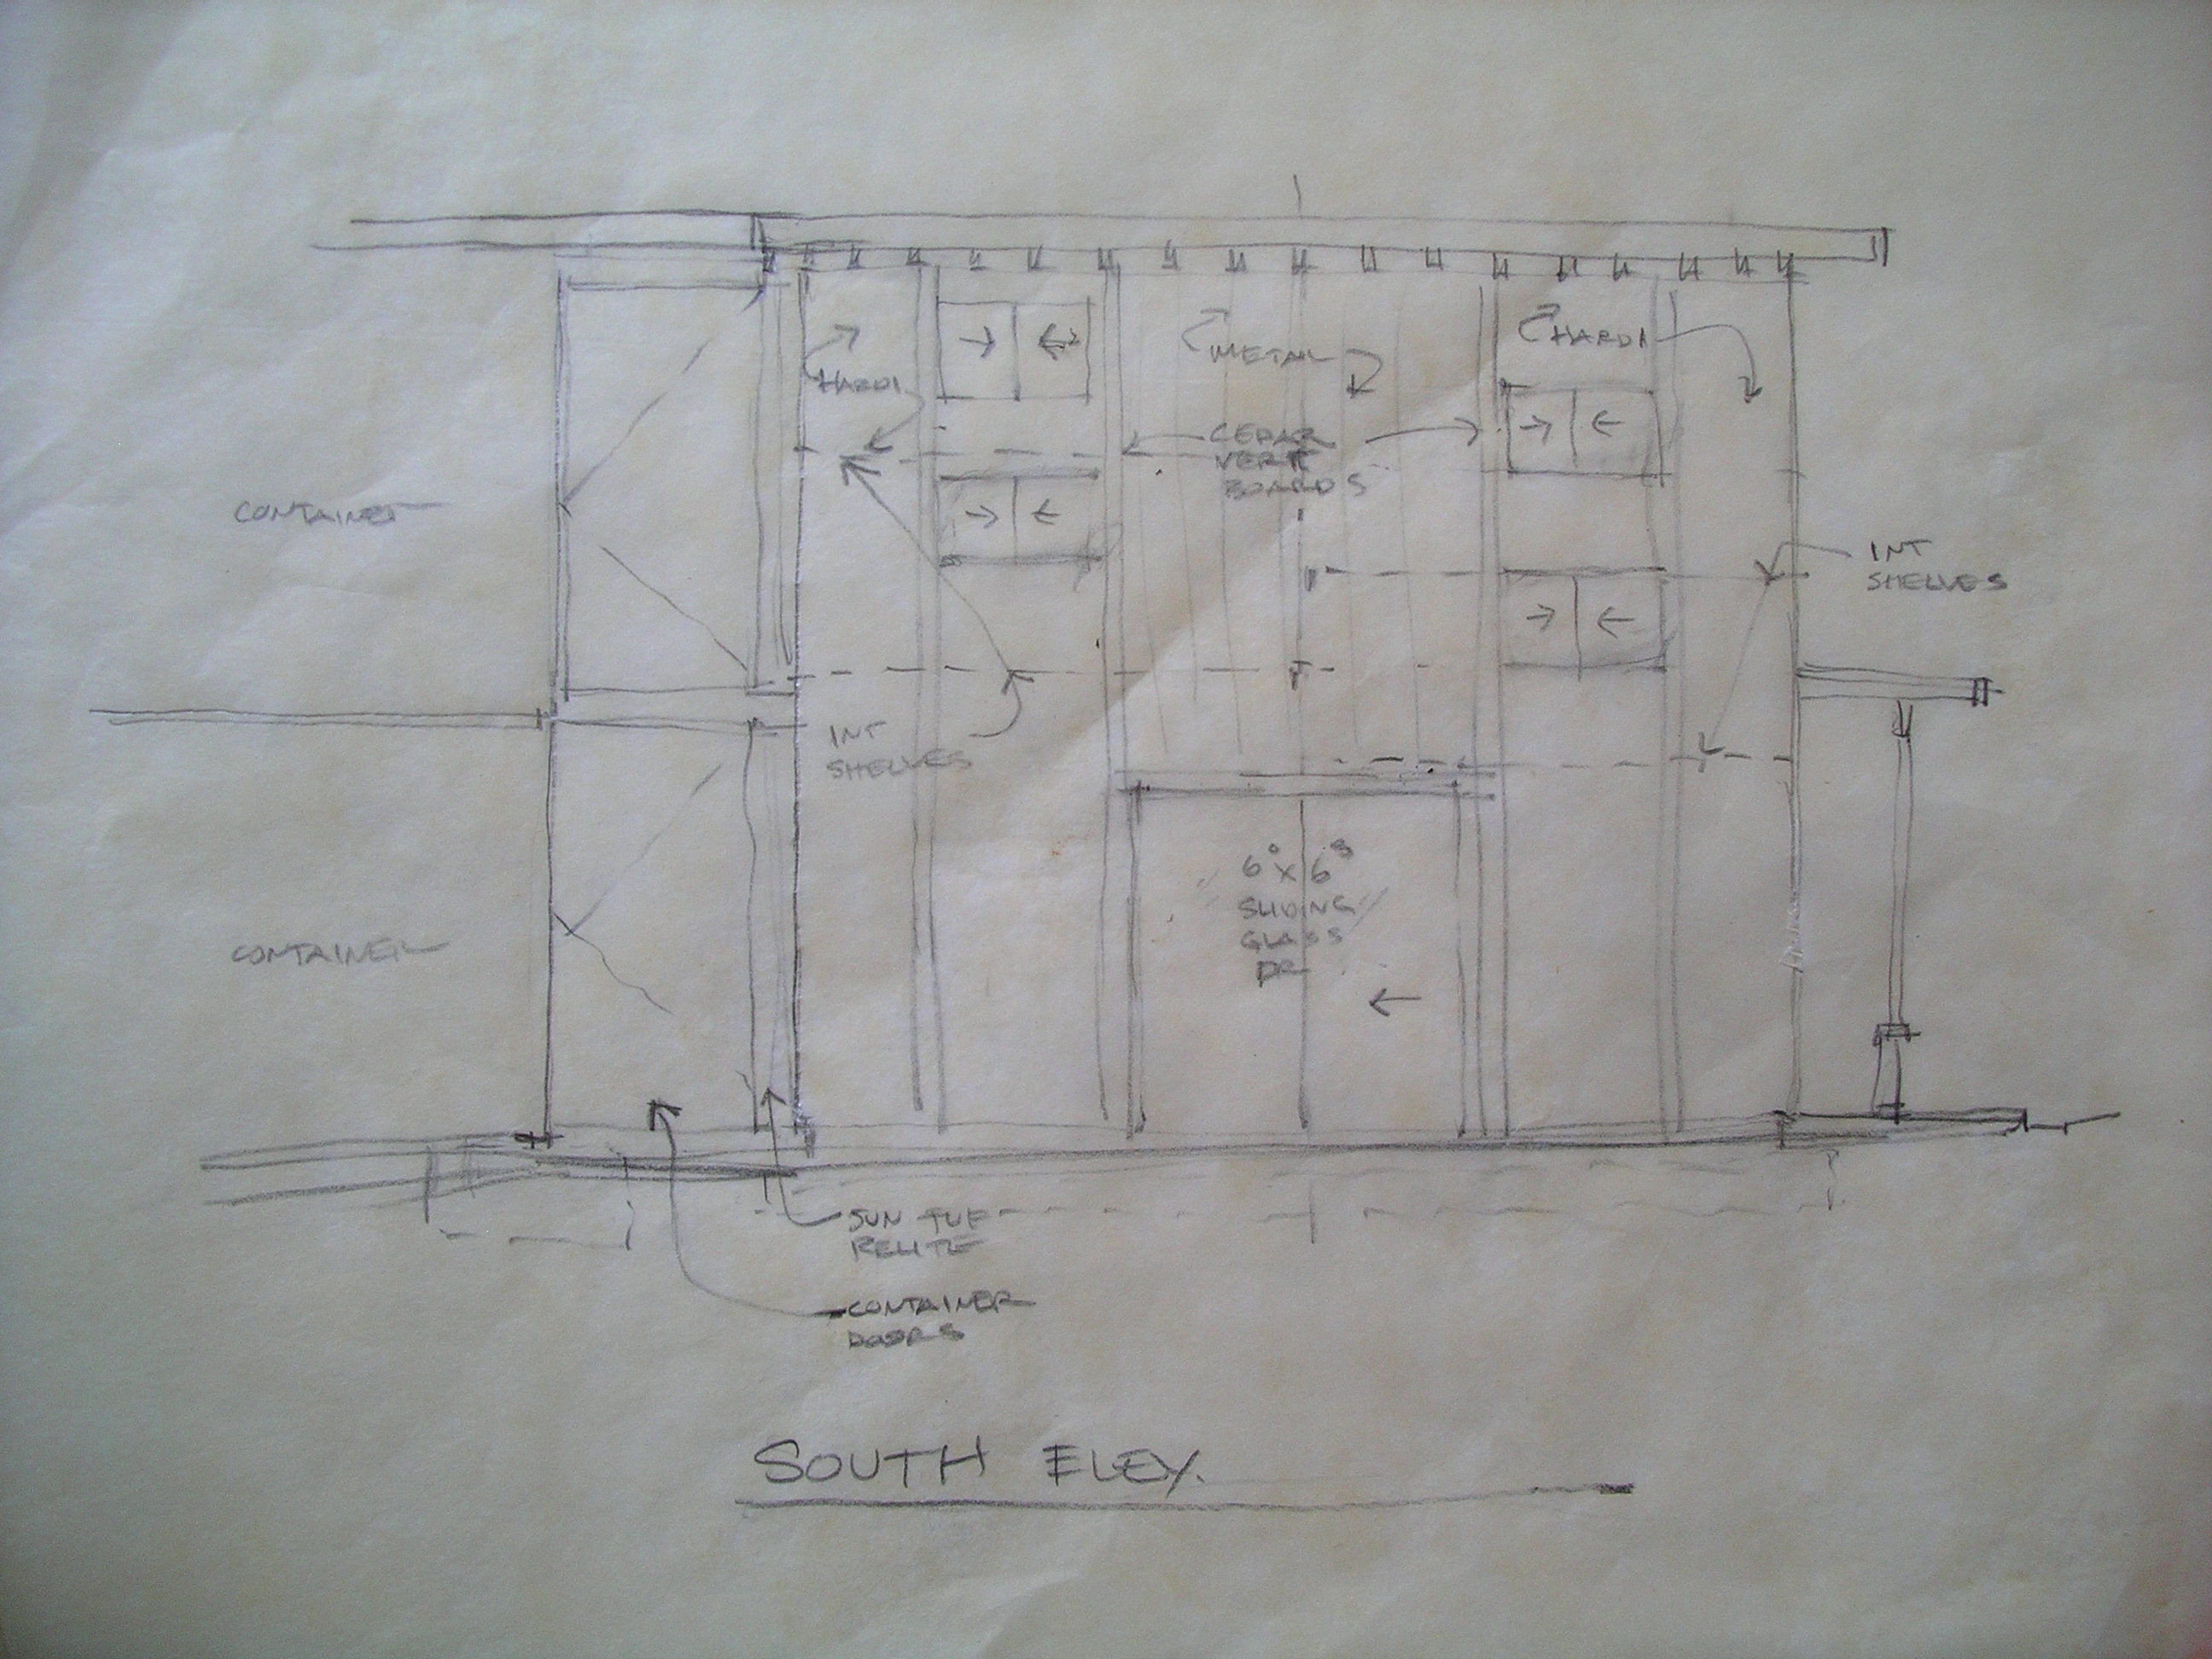 HARDI
METAL
HARDI
CEDAR
VERT
BOARDS
CONTAINER
INT
SHELVES
INT
SHELVES
6° x 6⁸
SLIDING
GLASS
DR
CONTAINER
SUN TUF
RELITE
CONTAINER
DOORS
SOUTH ELEV.